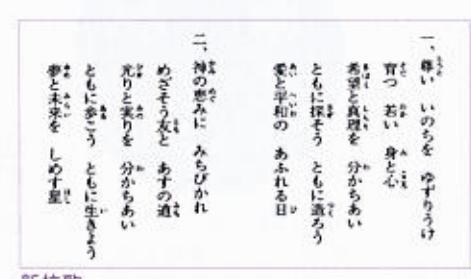 一、尊い いのちを ゆずりうけ
育つ 若い 身と心
希望と真理を 分かちあい
ともに探そう ともに造ろう
愛と平和の あふれる日
二、神の恵みに みちびかれ
めざそう友と あすの道
光りと実りを 分かちあい
ともに歩こう ともに生きよう
夢と未来を しめす星
新校歌